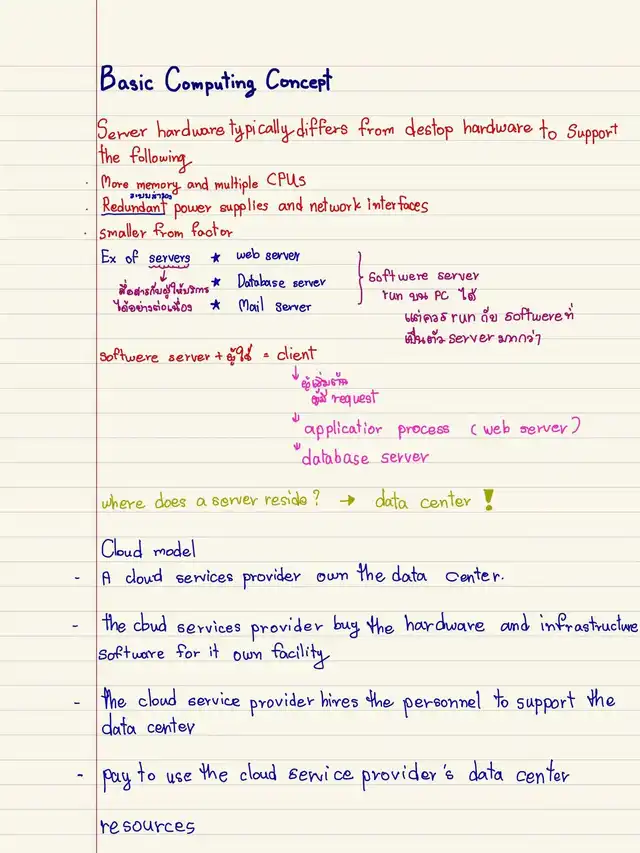 Basic Computing Concept
Server hardware typically differs from destop hardware to support
the following
· More memory and multiple CPUs
ระบบสำรอง
· Redundant power supplies and network interfaces
· smaller from factor
Ex of servers ★ web server
สื่อสารกับผู้ให้บริการ ★ Database server
ได้อย่างต่อเนื่อง ★ Mail server
Softwere server
run บน PC ได้
แต่ควร run กับ softwere ที่
เป็นตัว server มากกว่า
softwere server + ผู้ใช้ = client
ผู้เริ่มต้น
ผู้มี request
application process (web server)
database server
where does a server reside? → data center !
Cloud model
- A cloud services provider own the data center.
- the cloud services provider buy the hardware and infrastructure
software for it own facility
- the cloud service provider hires the personnel to support the
data center
- pay to use the cloud service provider's data center
resources